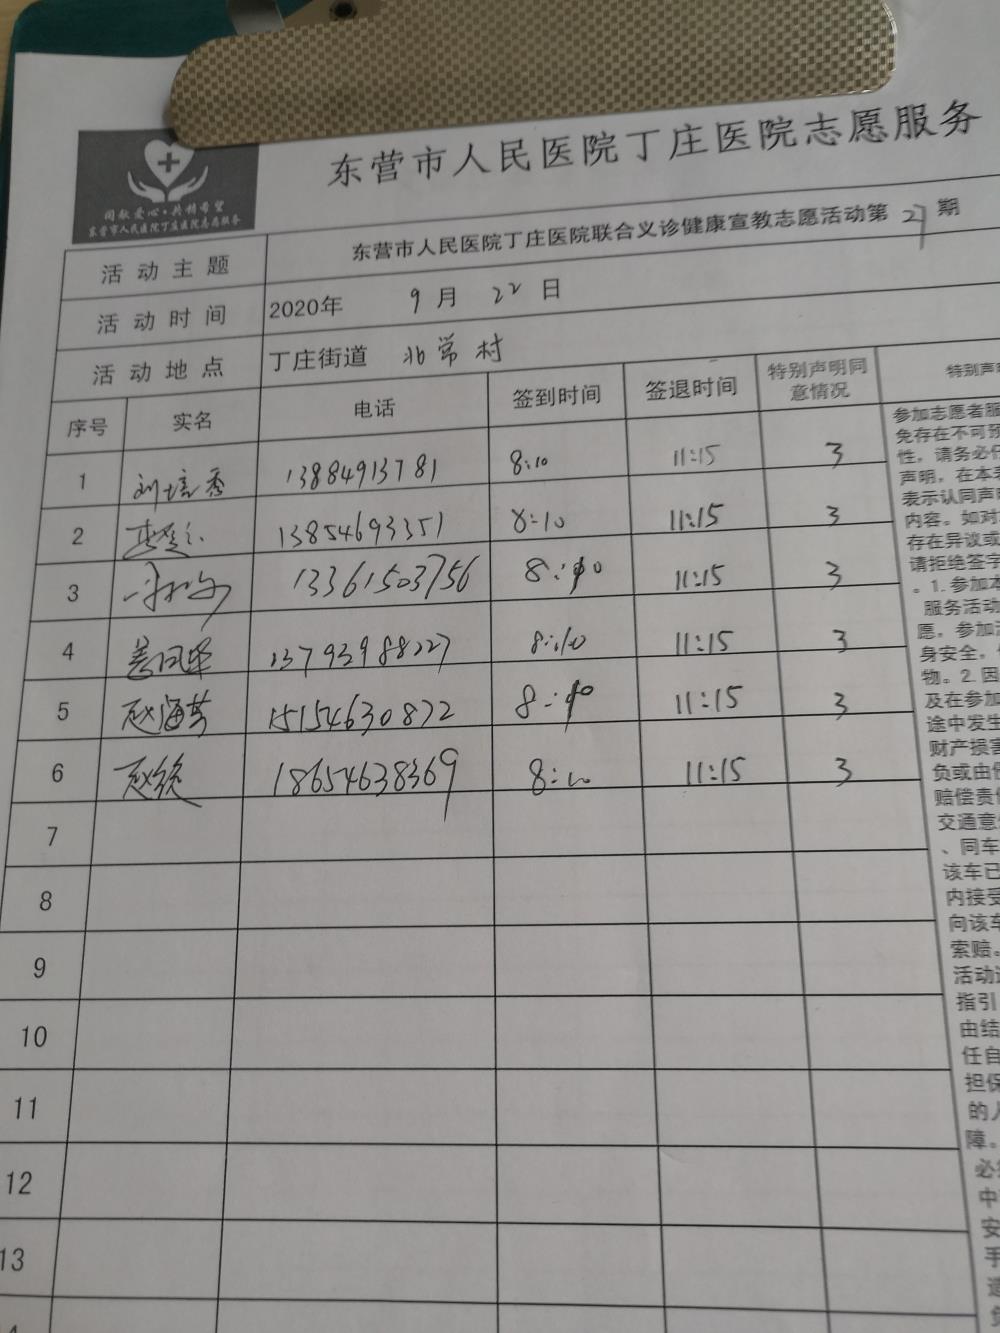 东营市人民医院丁庄医院志愿服务
同献爱心·共精希望
东营市人民医院丁庄医院志愿服务
活动主题 东营市人民医院丁庄医院联合义诊健康宣教志愿活动第27期
活动时间 2020年 9月 22日
活动地点 丁庄街道 北常村
序号 实名 电话 签到时间 签退时间 特别声明同意情况 特别声明
1 刘培秀 13884913781 8:10 11:15 3
2 13854693351 8:10 11:15 3
3 13361503756 8:10 11:15 3
4 13793988227 8:10 11:15 3
5 赵海英 15154630872 8:10 11:15 3
6 赵统 18654638369 8:10 11:15 3
7
8
9
10
11
12
13
参加志愿者服
免存在不可预
性，请务必仔
声明，在本表
表示认同声明
内容。如对
存在异议或
请拒绝签字
。1.参加本
服务活动
愿，参加活
身安全，
物。2.因
及在参加
途中发生
财产损害
负或由
赔偿责任
交通意
、同车
该车已
内接受
向该车
索赔。
活动
指引
由结
任自
担保
的人
障。
必
中
安
手